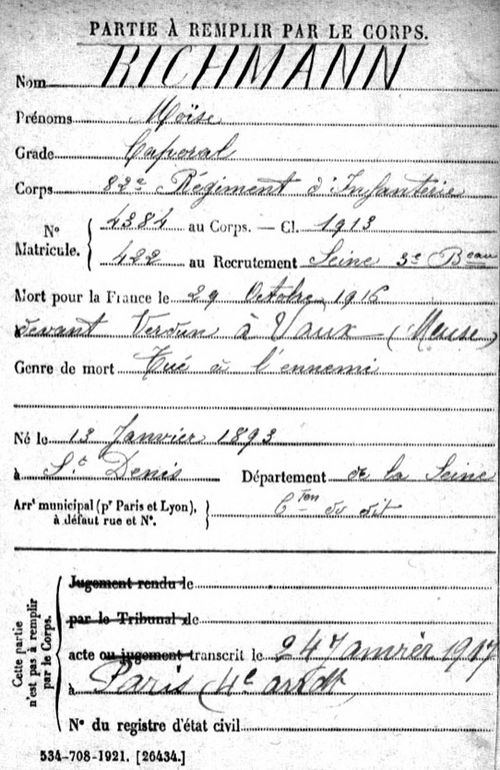 PARTIE À REMPLIR PAR LE CORPS.
Nom RICHMANN
Prénoms Moïse
Grade Caporal
Corps 82e Régiment d'Infanterie
N° Matricule. { 4384 au Corps. — Cl. 1913
422 au Recrutement Seine 3e Beau
Mort pour la France le 29 Octobre 1916
devant Verdun à Vaux (Meuse)
Genre de mort Tué à l'ennemi
Né le 13 Janvier 1893
à St Denis Département de la Seine
Arrt municipal (pr Paris et Lyon), à défaut rue et N°. } Cton du dit
Cette partie n'est pas à remplir par le Corps.
Jugement rendu le
par le Tribunal de
acte ou jugement transcrit le 24 Janvier 1917
à Paris (4e arrdt
N° du registre d'état civil
534-708-1921. [26434.]